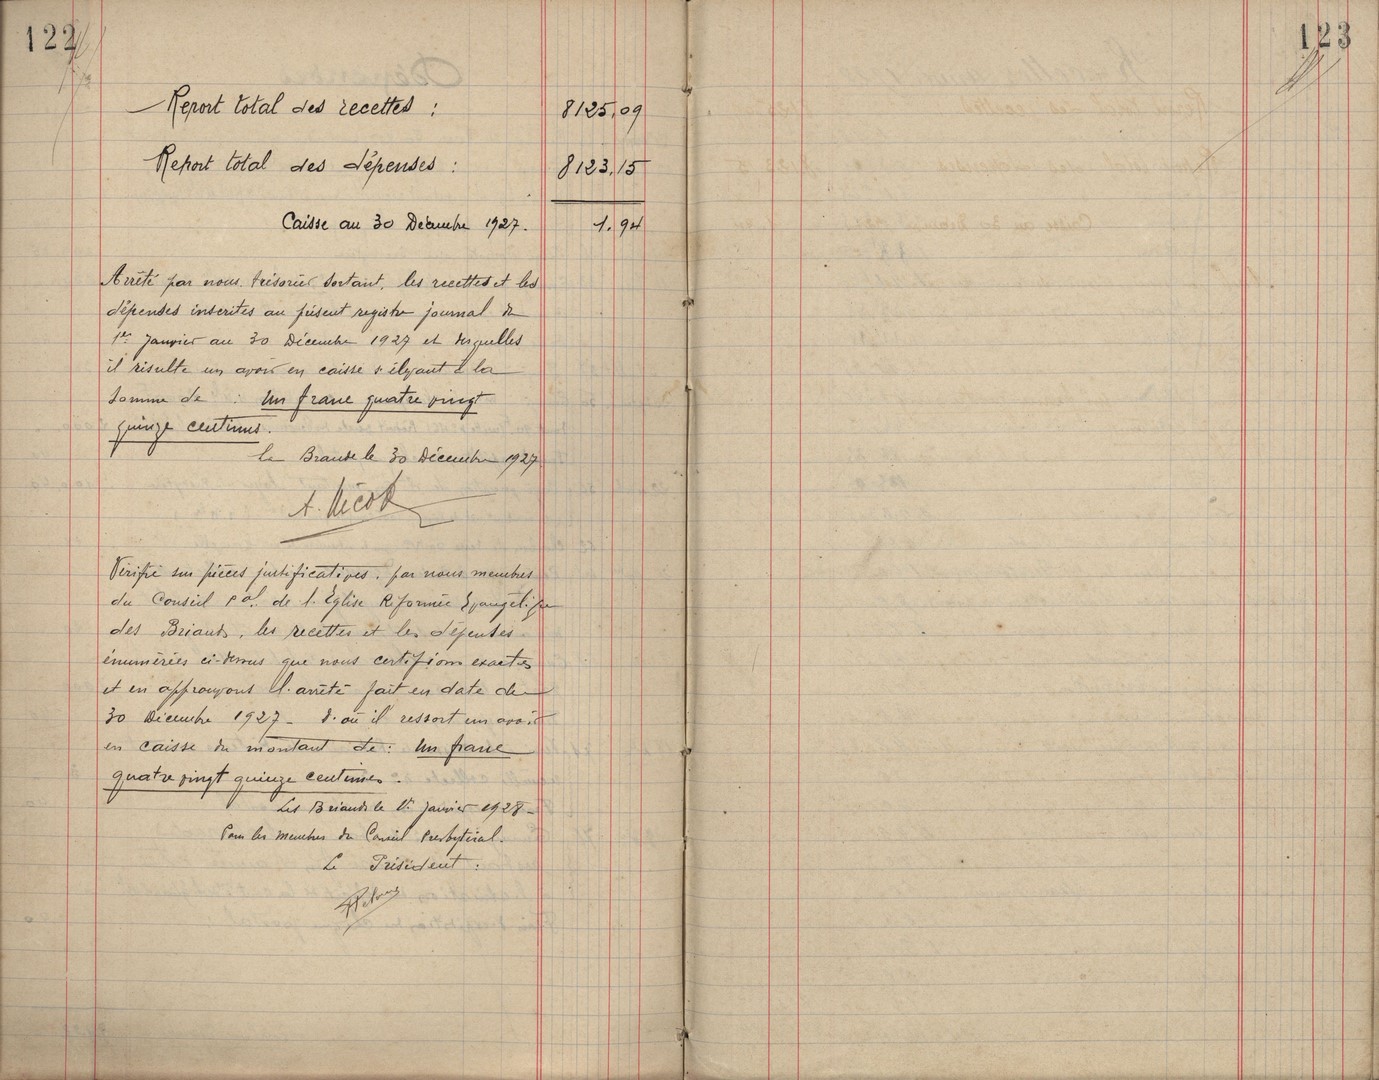 122
Report total des recettes : 8125,09
Report total des dépenses : 8123,15
Caisse au 30 Décembre 1927. 1.94
Arrêté par nous trésorier sortant, les recettes et les
dépenses inscrites au présent registre journal du
1er Janvier au 30 Décembre 1927 et desquelles
il résulte un avoir en caisse s'élevant à la
somme de : Un franc quatre vingt
quinze centimes.
le 30 Décembre 1927
A. Nicol
Vérifié sur pièces justificatives, par nous membres
du Conseil Pal. de l'Eglise Réformée Evangélique
des Briands, les recettes et les dépenses
énumérées ci-dessus que nous certifions exactes
et en approuvons l'arrêté fait en date du
30 Décembre 1927 - d'où il ressort un avoir
en caisse du montant de : Un franc
quatre vingt quinze centimes.
Les Briands le 1er Janvier 1928 -
Pour les membres du Conseil Presbytéral.
Le Président :
123